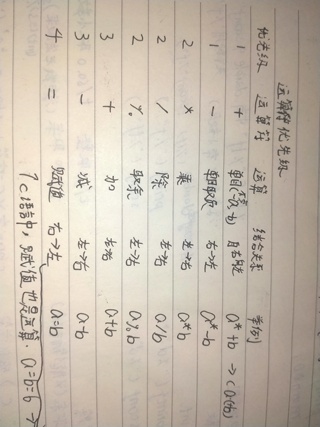 运算符优先级
优先级 运算符 运算 结合关系 举例
1 + 自右向左 a*+b →
1 - 右→左 a*-b
2 * 乘 左→右 a*b
2 / 除 左→右 a/b
2 % 取余 左→右 a%b
3 + 加 左→右 a+b
3 - 减 左→右 a-b
4 = 赋值 右→左 a=b
C语言中,赋值也是运算. a=b=6 →